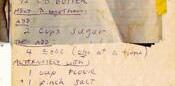 1/2 LB. BUTTER
MELT & together
ADD
2 cups sugar
ADD
4 EGGS (one at a time)
ALTERNATELY with:
1 cup FLOUR
+ 1 pinch salt